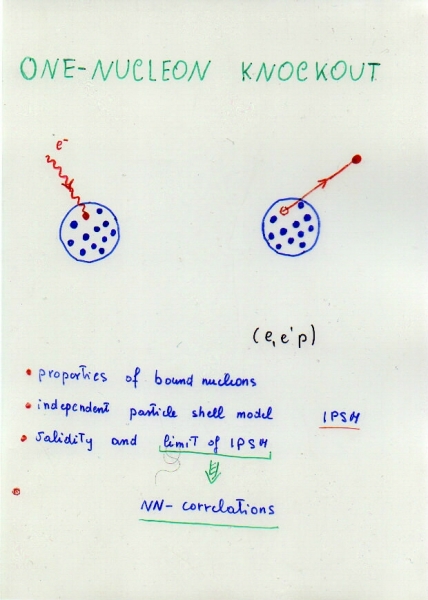 ONE-NUCLEON KNOCKOUT
e-
(e,e'p)
• properties of bound nucleons
• independent particle shell model IPSM
• Validity and limit of IPSM
NN-correlations